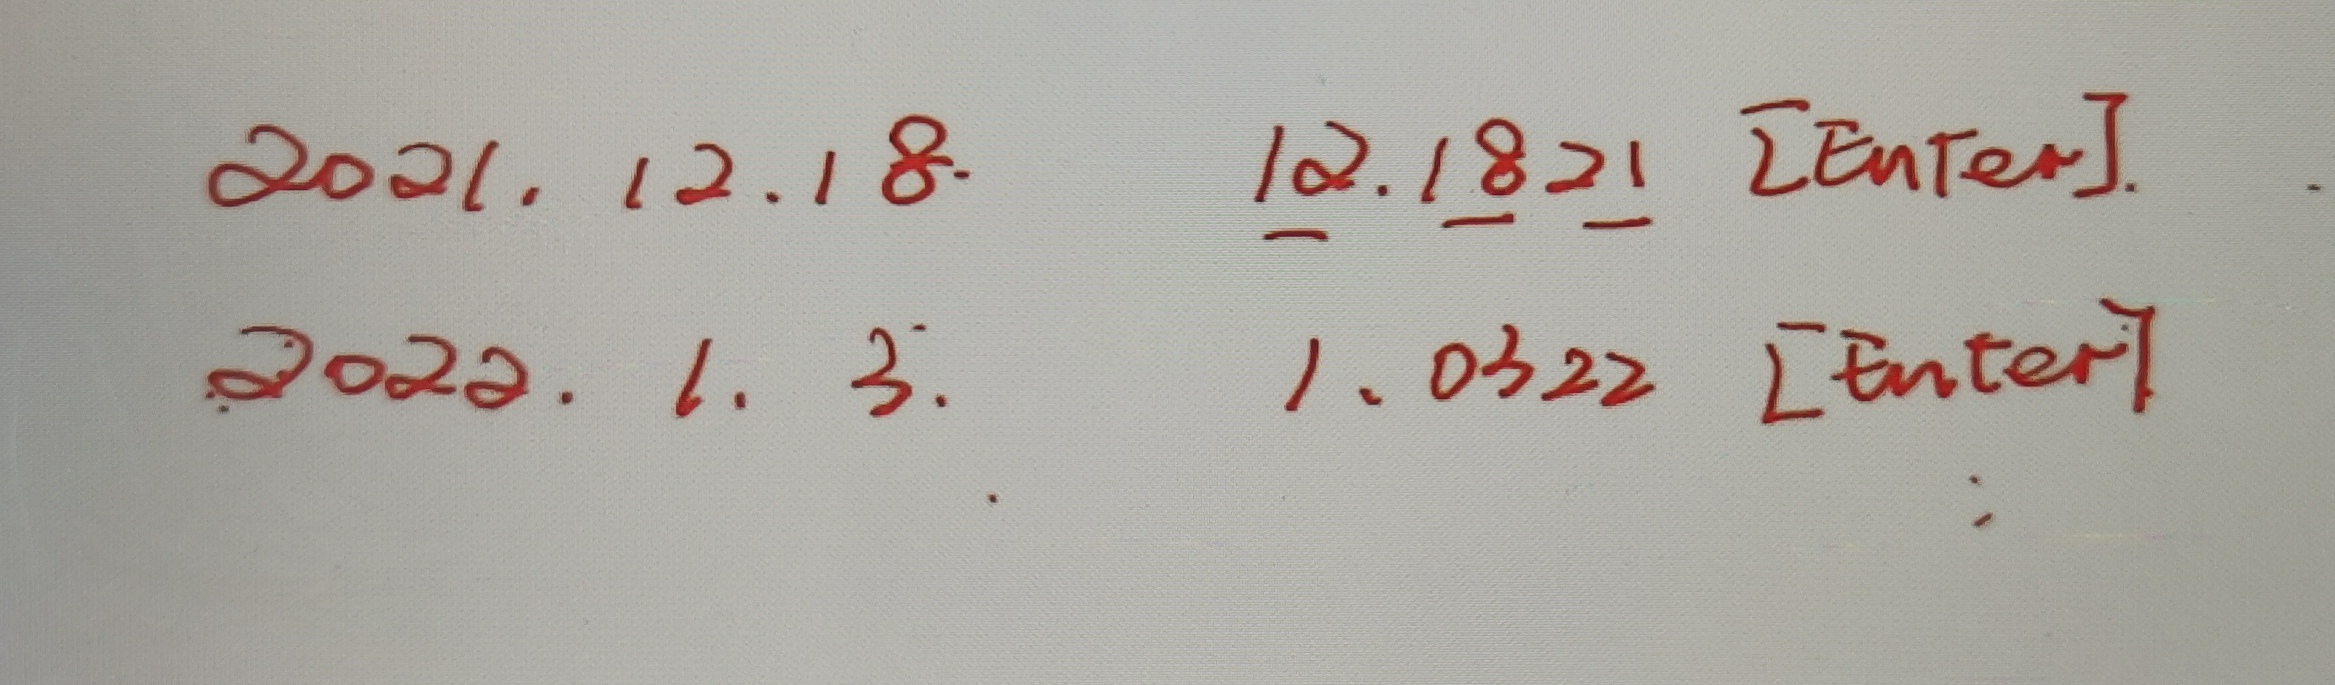 2021. 12.18. 12.1821 [Enter].
2022. 1. 3. 1.0322 [Enter]